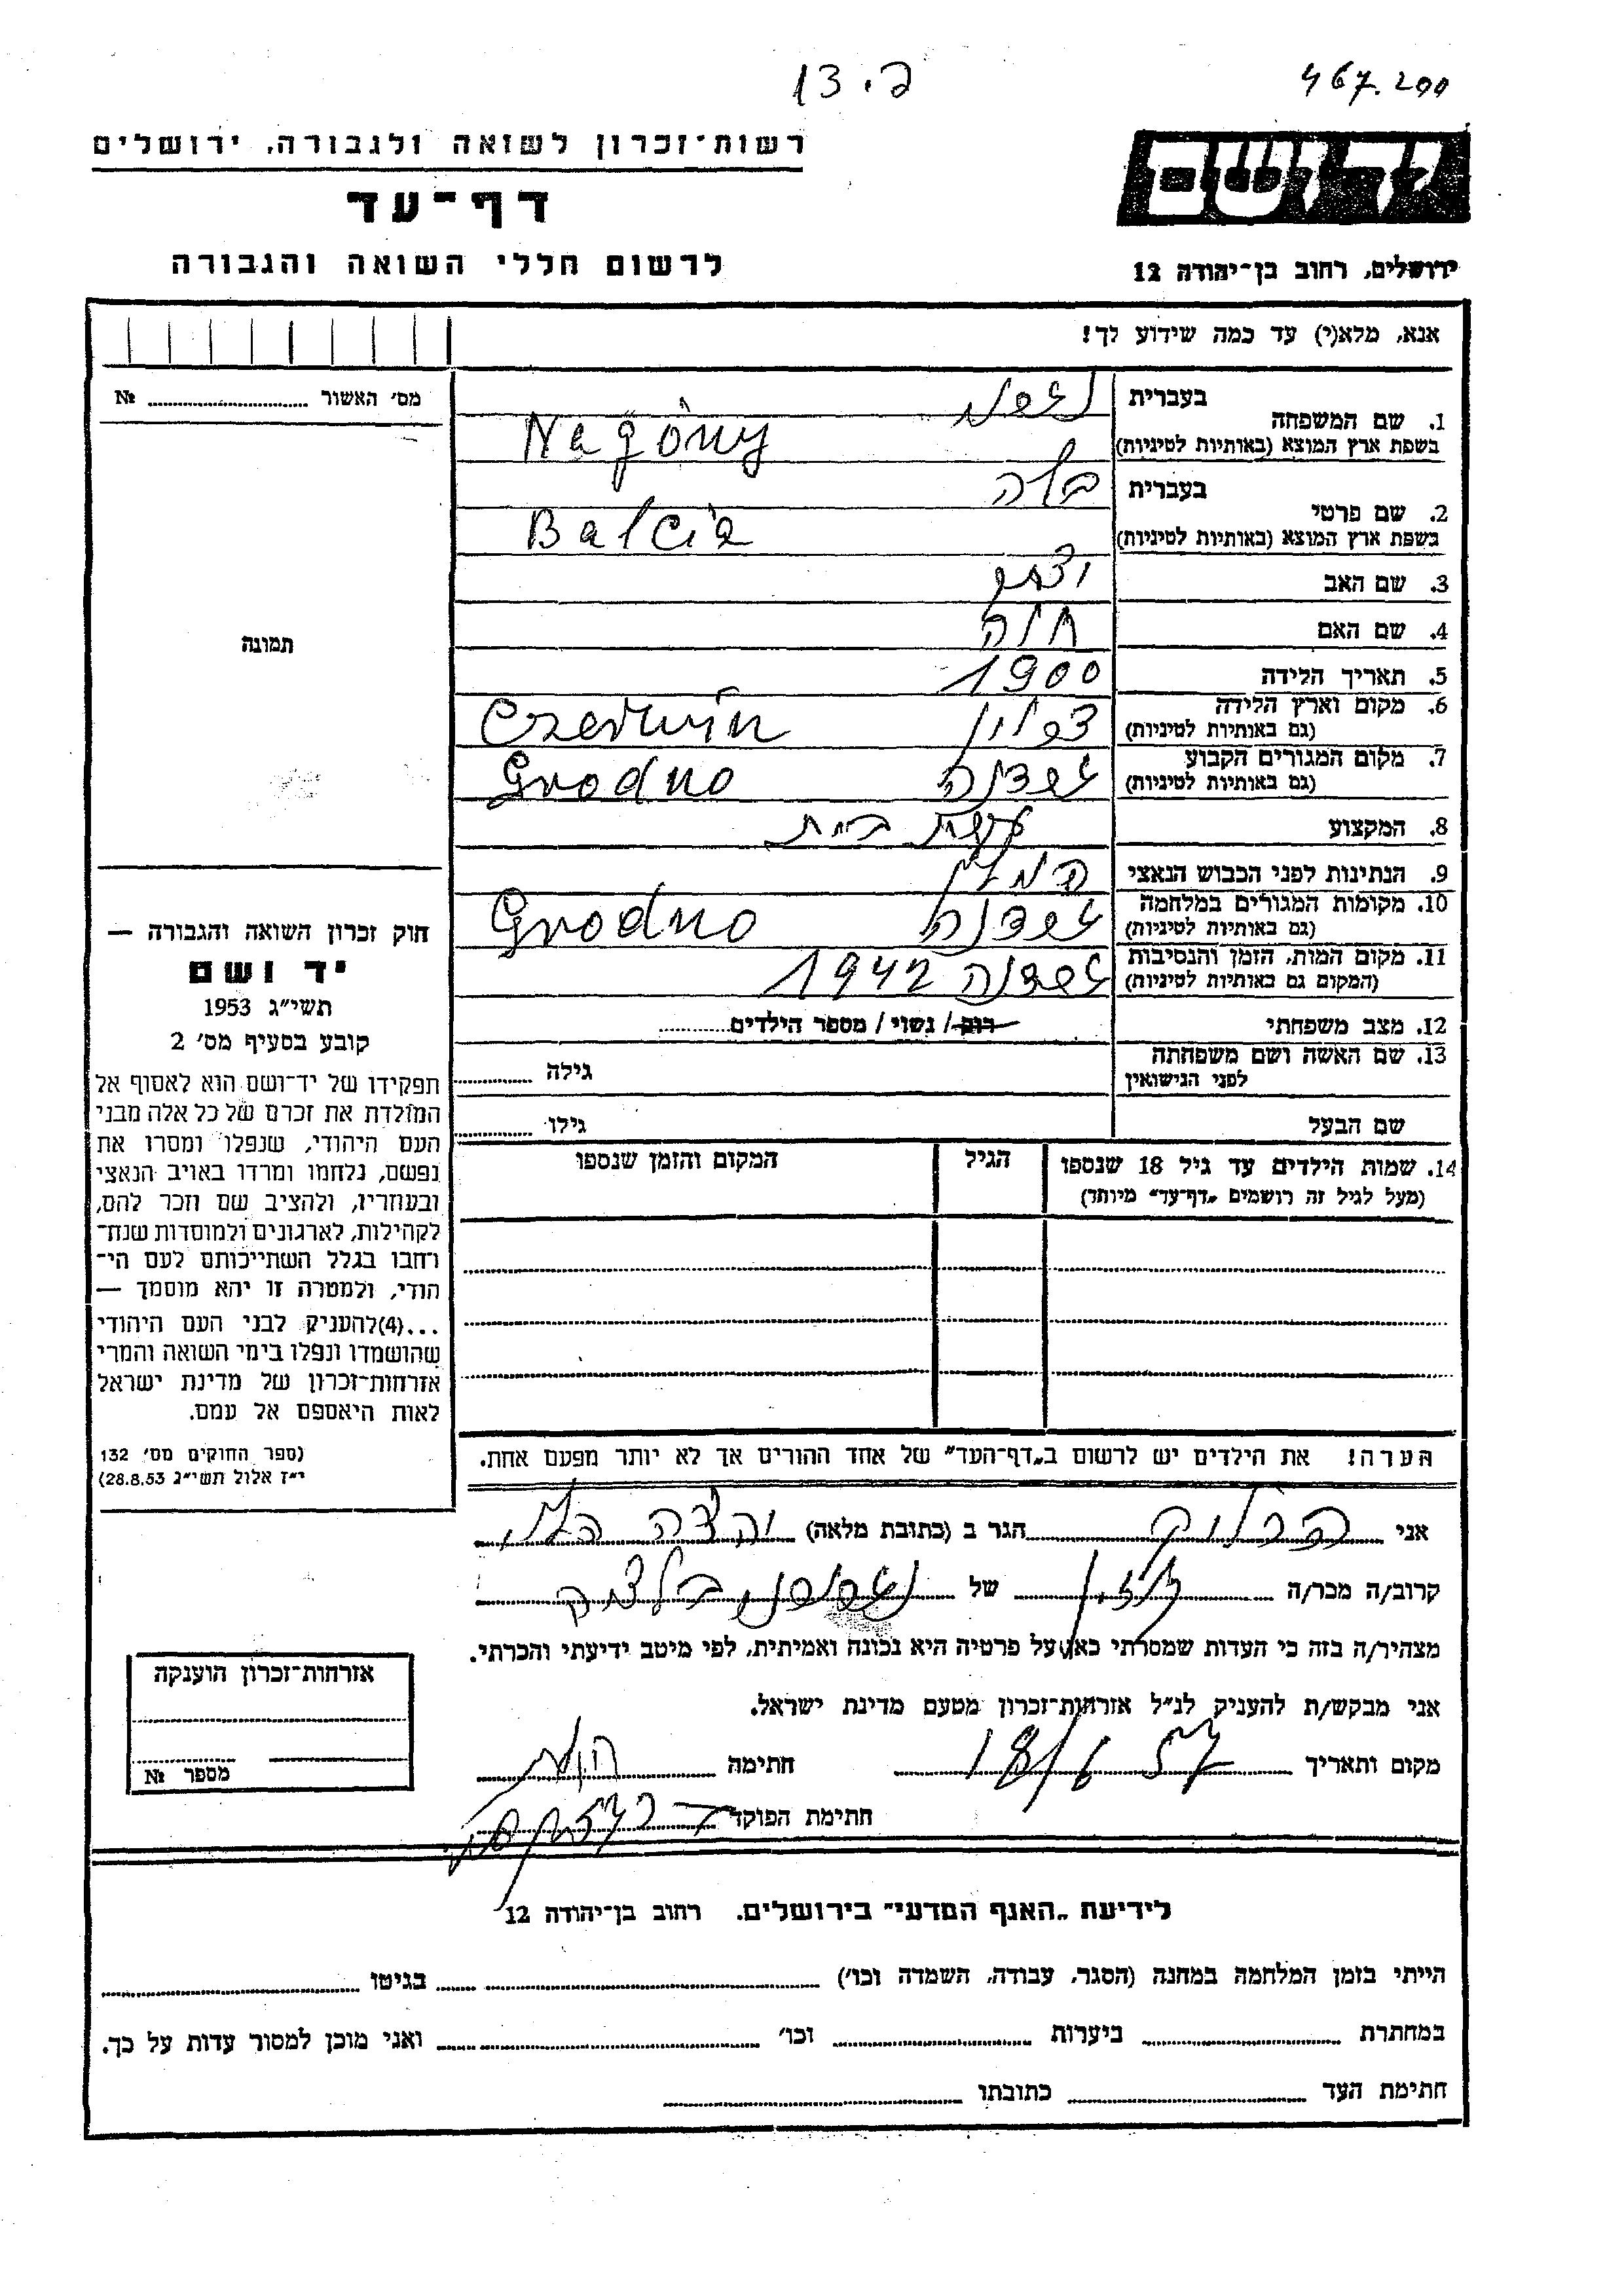 467.200
13.פ
רשות־זכרון לשואה ולגבורה, ירושלים
דף־עד
לרשום חללי השואה והגבורה
יד ושם
ירושלים, רחוב בן־יהודה 12
אנא, מלא(י) עד כמה שידוע לך!
מס׳ האשור № 
1. שם המשפחה
בעברית
בשפת ארץ המוצא (באותיות לטיניות) Nagórny
2. שם פרטי
בעברית
בשפת ארץ המוצא (באותיות לטיניות) Balcia
3. שם האב יצחק
4. שם האם חוה
5. תאריך הלידה 1900
6. מקום וארץ הלידה
(גם באותיות לטיניות) Czerwin
7. מקום המגורים הקבוע גרודנה
(גם באותיות לטיניות) Grodno
8. המקצוע עקרת בית
9. הנתינות לפני הכבוש הנאצי
10. מקומות המגורים במלחמה גרודנה
(גם באותיות לטיניות) Grodno
11. מקום המות, הזמן והנסיבות גרודנה 1942
(המקום גם באותיות לטיניות)
12. מצב משפחתי רוק / נשוי / מספר הילדים
13. שם האשה ושם משפחתה
לפני הנישואין
גילה
שם הבעל
גילו
14. שמות הילדים עד גיל 18 שנספו
(מעל לגיל זה רושמים „דף־עד״ מיוחד)
הגיל
המקום והזמן שנספו
הערה! את הילדים יש לרשום ב„דף־העד״ של אחד ההורים אך לא יותר מפעם אחת.
תמונה
חוק זכרון השואה והגבורה —
יד ושם
תשי״ג 1953
קובע בסעיף מס׳ 2
תפקידו של יד־ושם הוא לאסוף אל
המולדת את זכרם של כל אלה מבני
העם היהודי, שנפלו ומסרו את
נפשם, נלחמו ומרדו באויב הנאצי
ובעוזריו, ולהציב שם וזכר להם,
לקהילות, לארגונים ולמוסדות שנח־
רחבו בגלל השתייכותם לעם הי־
הודי, ולמטרה זו יהא מוסמך —
...(4)להעניק לבני העם היהודי
שהושמדו ונפלו בימי השואה והמרי
אזרחות־זכרון של מדינת ישראל
לאות היאספם אל עמם.
(ספר החוקים מס׳ 132
י״ז אלול תשי״ג 28.8.53)
אני הגר ב (כתובת מלאה)
קרוב/ה מכר/ה של
מצהיר/ה בזה כי העדות שמסרתי כאן על פרטיה היא נכונה ואמיתית, לפי מיטב ידיעתי והכרתי.
אני מבקש/ת להעניק לנ״ל אזרחות־זכרון מטעם מדינת ישראל.
מקום ותאריך 18/6 57 חתימה
חתימת הפוקד
אזרחות־זכרון הוענקה
מספר №
לידיעת „האגף המדעי״ בירושלים. רחוב בן־יהודה 12
הייתי בזמן המלחמה במחנה (הסגר, עבודה, השמדה וכו׳) בגיטו
במחתרת ביערות וכו׳ ואני מוכן למסור עדות על כך.
חתימת העד כתובתו